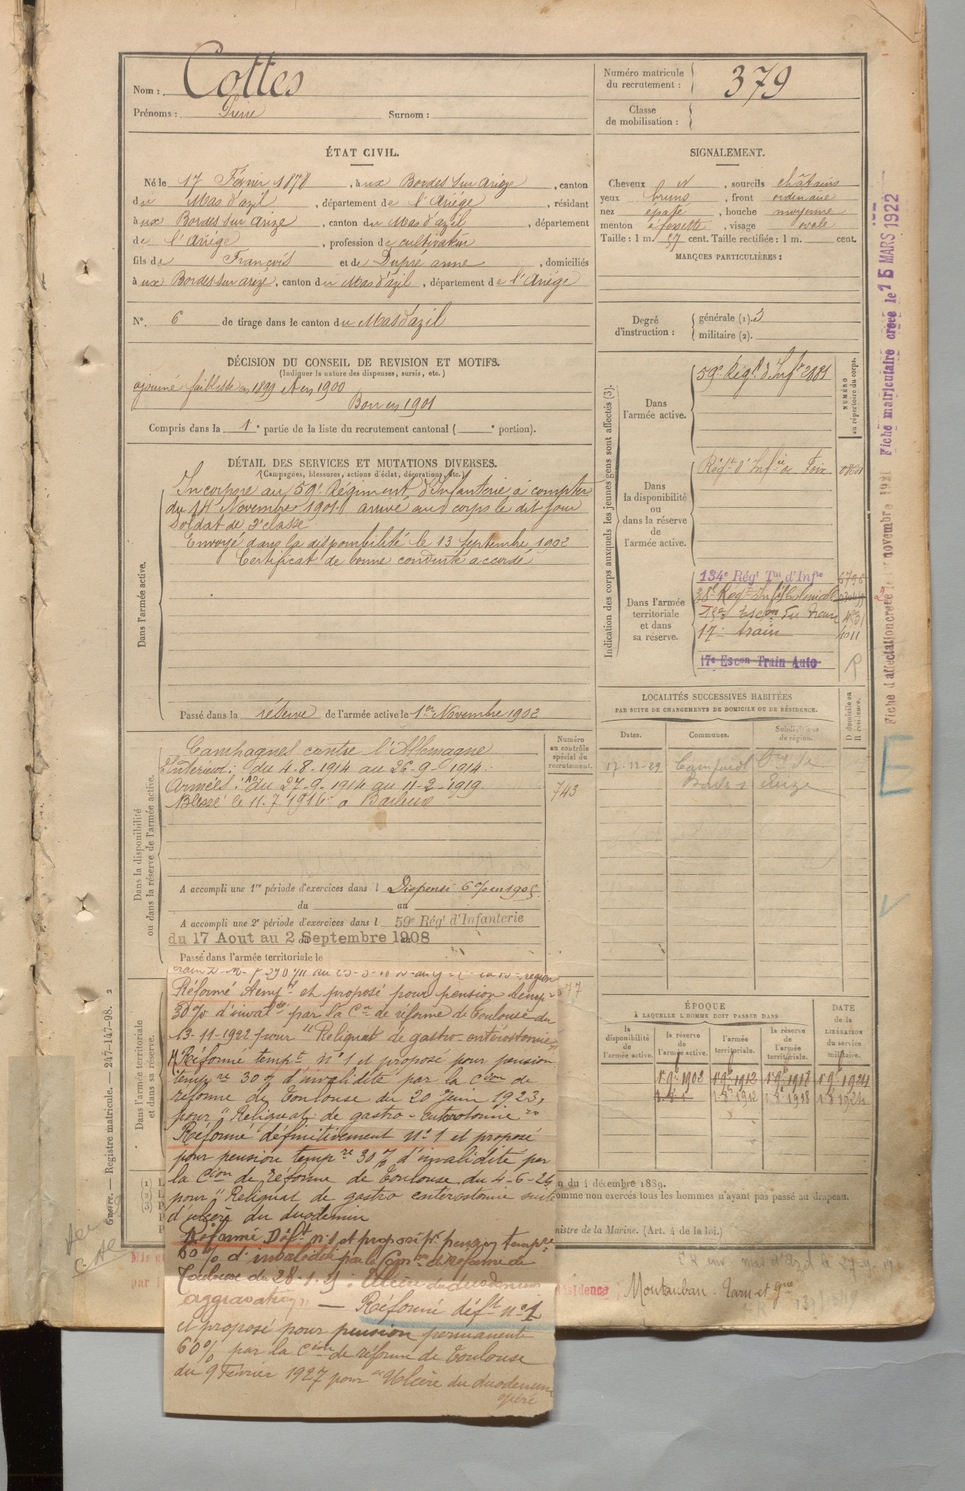 Nom : Cottes
Prénoms : Pierre Surnom :
Numéro matricule du recrutement : 379
Classe de mobilisation :
ÉTAT CIVIL.
Né le 17 Février 1878, à ux Bordes sur Arize, canton
du Mas d'azil, département de l'Ariége, résidant
à ux Bordes sur Arize, canton du Mas d'azil, département
de l'Ariége, profession de cultivateur
fils de François et de Dupré anne, domiciliés
à ux Bordes sur arize, canton du Mas d'azil, département de l'Ariége
N° 6 de tirage dans le canton du Mas d'azil
SIGNALEMENT.
Cheveux et sourcils châtains
yeux bruns, front ordinaire
nez épaté, bouche moyenne
menton à fossette, visage ovale
Taille : 1 m. 57 cent. Taille rectifiée : 1 m. cent.
MARQUES PARTICULIÈRES :
Degré d'instruction : générale (1). 3
militaire (2).
DÉCISION DU CONSEIL DE REVISION ET MOTIFS.
(Indiquer la nature des dispenses, sursis, etc.)
ajourné faiblesse en 1899 et en 1900
Bon en 1901
Compris dans la 1e partie de la liste du recrutement cantonal ( e portion).
DÉTAIL DES SERVICES ET MUTATIONS DIVERSES.
(Campagnes, blessures, actions d'éclat, décorations, etc.)
Dans l'armée active.
Incorporé au 59e Régiment d'Infanterie à compter
du 14 Novembre 1901 arrivé au corps le dit jour
Soldat de 2e classe
Envoyé dans la disponibilité le 13 Septembre 1902
Certificat de bonne conduite accordé
Passé dans la réserve de l'armée active le 1er Novembre 1902
Indication des corps auxquels les jeunes gens sont affectés (3).
NUMÉRO au répertoire du corps.
Dans l'armée active.
59e Régt d'Infie
Dans la disponibilité ou dans la réserve de l'armée active.
Régt d'Infie de Foix
Dans l'armée territoriale et dans sa réserve.
134e Régt Tal d'Infie
17e train
17e Escon Train Auto
R
LOCALITÉS SUCCESSIVES HABITÉES
PAR SUITE DE CHANGEMENTS DE DOMICILE OU DE RÉSIDENCE.
Dates. Communes. Subdivisions de région. D domicile ou R résidence.
Dans la disponibilité ou dans la réserve de l'armée active.
Numéro au contrôle spécial du recrutement.
743
Campagnes contre l'Allemagne
Intérieur : du 4-8-1914 au 26-9-1914.
Armées : du 27-9-1914 au 11-2-1919
Blessé le 11-7-1916 à
A accompli une 1re période d'exercices dans l Dispensé
du au
A accompli une 2e période d'exercices dans l 59e Rég t d'Infanterie
du 17 Aout au 2 Septembre 1908
Passé dans l'armée territoriale le
Dans l'armée territoriale et dans sa réserve.
Réformé tempt et proposé pour pension temp.
30% d'inval té par la Con de réforme de Toulouse du
13-11-1922 pour "Reliquat de gastro-entérostomie
Réformé tempt n°1 et proposé pour pension
tempre 30% d'invalidité par la Cion de
réforme de Toulouse du 20 Juin 1923,
pour "Reliquat de gastro-enterostomie"
Réformé définitivement n°1 et proposé
pour pension tempre 30% d'invalidité par
la Cion de réforme de Toulouse du 4-6-24
pour "Reliquat de gastro enterostomie suite
d'ulcère du duodénum
Réformé Déft n°1 et proposé pt pension tempre
60% d'invalidité par la Con de réforme de
Toulouse du 28-1-25 : Ulcère du duodénum
aggravation. — Réformé déft n°1
et proposé pour pension permanente
60% par la Cion de réforme de Toulouse
du 9 Février 1927 pour "Ulcère du duodenum
opéré
ÉPOQUE
À LAQUELLE L'HOMME DOIT PASSER DANS
la disponibilité de l'armée active. la réserve de l'armée active. l'armée territoriale. la réserve de l'armée territoriale. DATE de la LIBÉRATION du service militaire.
du 4 décembre 1889.
omme non exercés tous les hommes n'ayant pas passé au drapeau.
nistre de la Marine. (Art. 4 de la loi.)
ésidence Montauban. Tarn et Gne
Guerre. — Registre matricule. — 247-147-98.
Fiche d'affectation créée le 1er novembre 1921 Fiche matriculaire créée le 15 MARS 1922